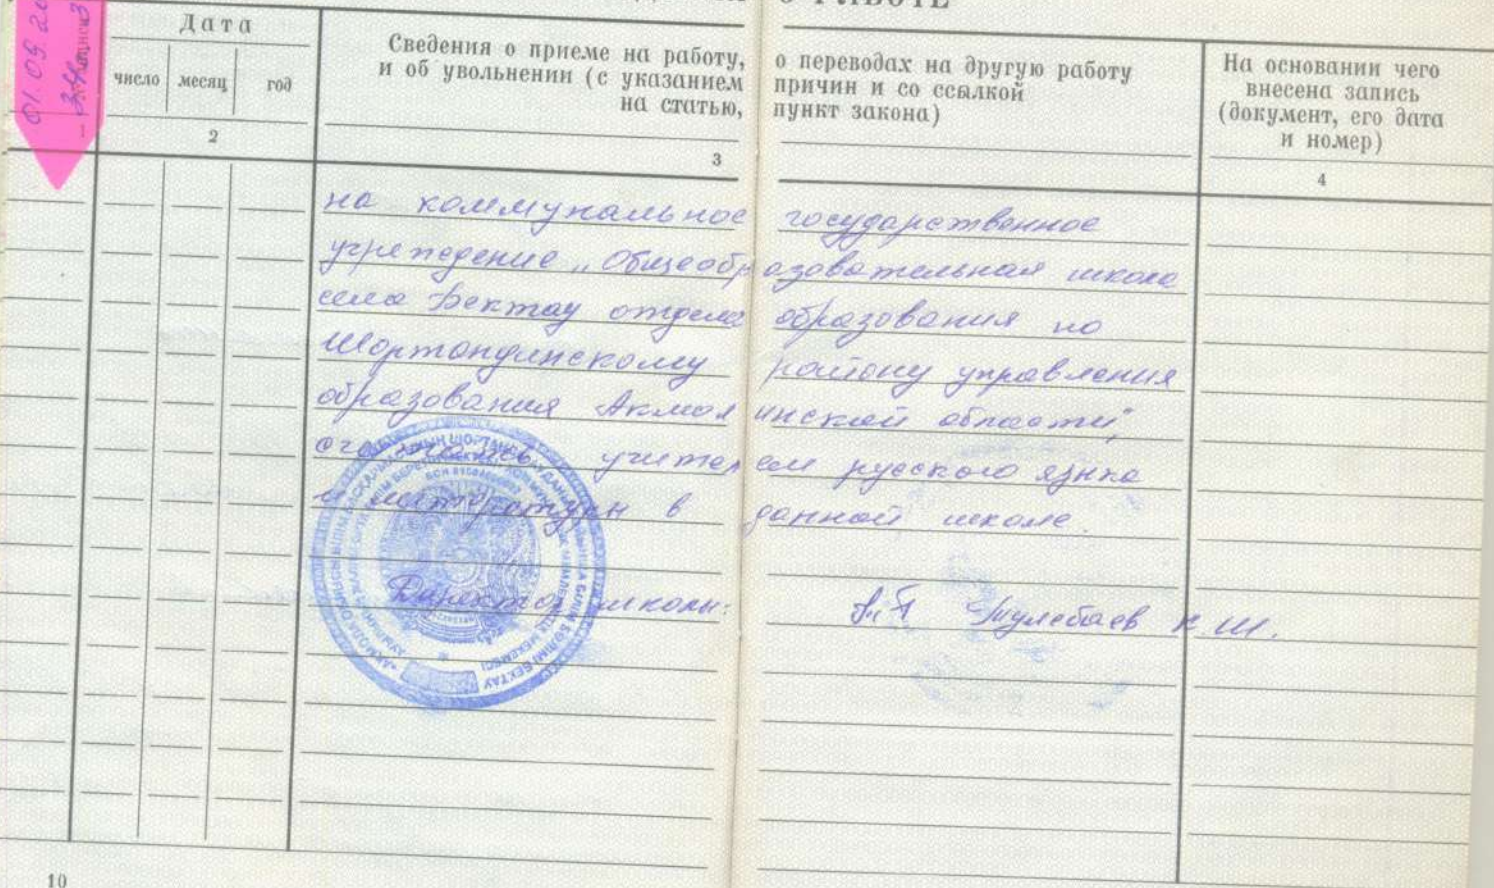 О РАБОТЕ
01.09.20
Дата
число месяц год
Сведения о приеме на работу, о переводах на другую работу
и об увольнении (с указанием причин и со ссылкой
на статью, пункт закона)
На основании чего
внесена запись
(документ, его дата
и номер)
1 2 3 4
на коммунальное государственное
учреждение „Общеобразовательная школа
села Бектау отдела образования по
Шортандинскому району управления
образования Акмолинской области",
осталась учителем русского языка
и литературы в данной школе.
Директор школы: Тулебаев К.Ш.
10